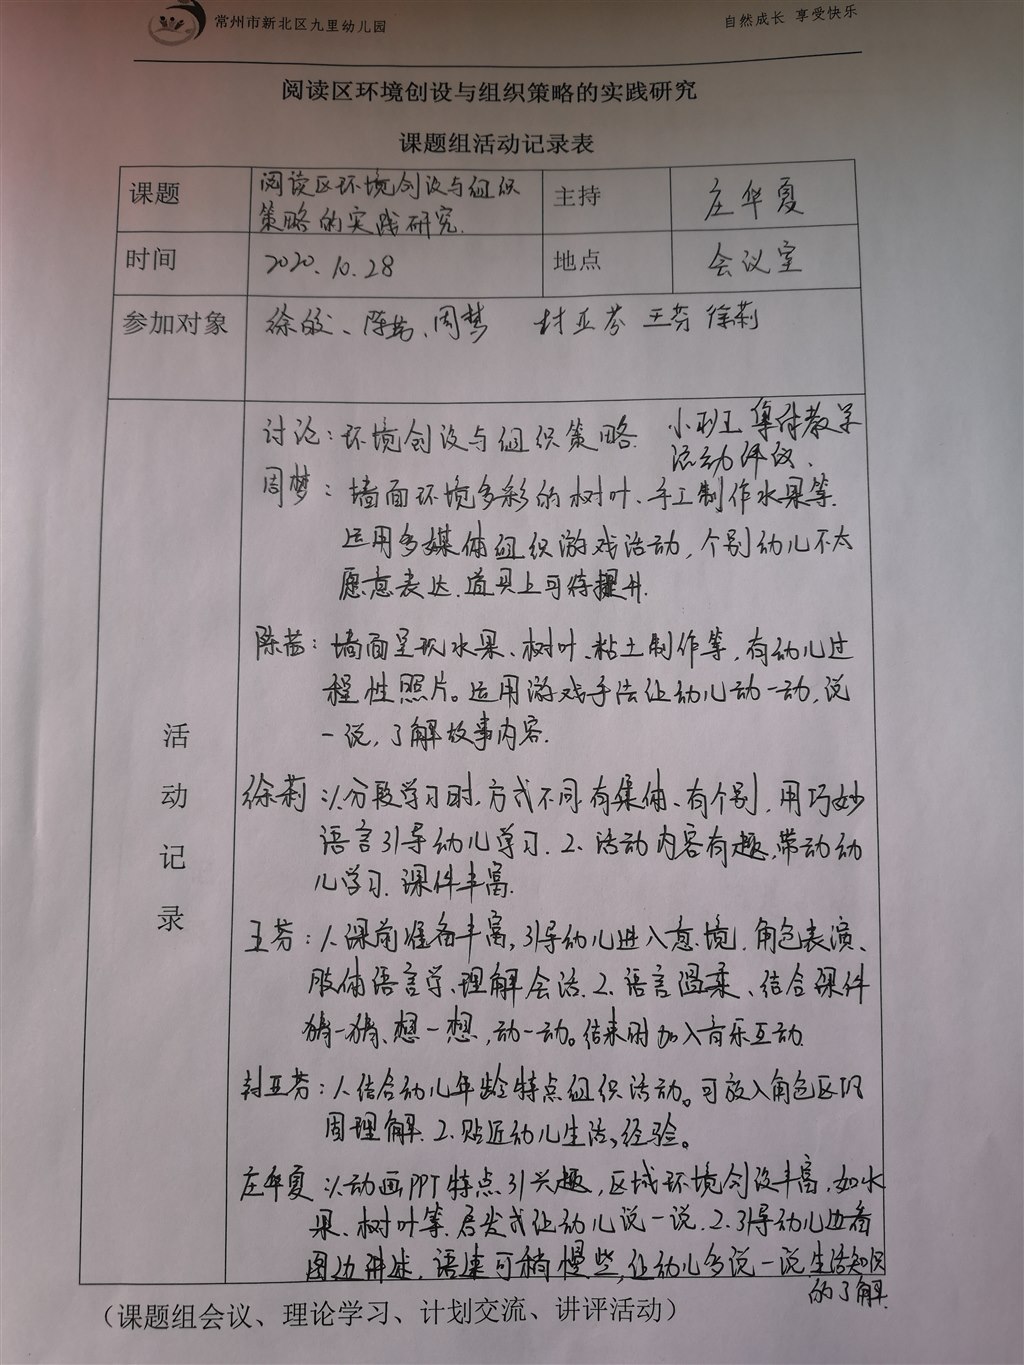 常州市新北区九里幼儿园
自然成长 享受快乐
阅读区环境创设与组织策略的实践研究
课题组活动记录表
课题
阅读区环境创设与组织
策略的实践研究.
主持
庄华夏
时间
2020.10.28
地点
会议室
参加对象
徐皎、陈茜、周梦 封亚芬 王芬 徐莉
活动记录
讨论:环境创设与组织策略.
小班王 教学
活动评议.
周梦:墙面环境多彩的树叶、手工制作水果等.
运用多媒体组织游戏活动,个别幼儿不太
愿意表达.道具上可待提升.
陈茜:墙面呈现水果、树叶、粘土制作等,有幼儿过
程性照片。运用游戏手法让幼儿动一动,说
一说,了解故事内容.
徐莉:1.分段学习时,方式不同,有集体、有个别,用巧妙
语言引导幼儿学习.2.活动内容有趣,带动幼
儿学习.课件丰富.
王芬:1.课前准备丰富,引导幼儿进入意境.角色表演、
肢体语言学、理解会话.2.语言温柔、结合课件
猜一猜、想一想,动一动。结束时加入音乐互动.
封亚芬:1.结合幼儿年龄特点组织活动。可放入角色区巩
固理解.2.贴近幼儿生活,经验。
庄华夏:1.动画PPT特点引兴趣,区域环境创设丰富,如水
果、树叶等.启发式让幼儿说一说.2.引导幼儿边看
图边讲述,语速可稍慢些,让幼儿多说一说生活知识
的了解.
(课题组会议、理论学习、计划交流、讲评活动)